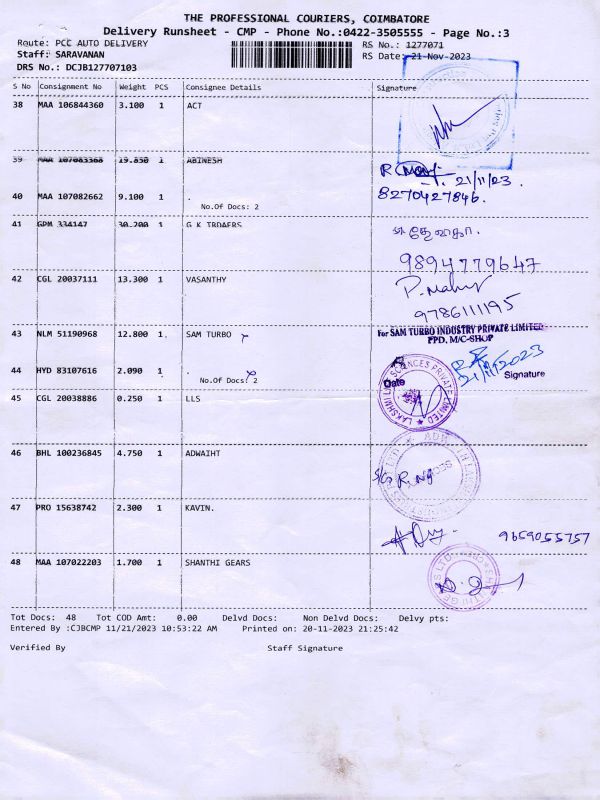 THE PROFESSIONAL COURIERS, COIMBATORE
Delivery Runsheet - CMP - Phone No.:0422-3505555 - Page No.:3
Route: PCC AUTO DELIVERY RS No.: 1277071
Staff: SARAVANAN RS Date: 21-Nov-2023
DRS No.: DCJB127707103
S No Consignment No Weight PCS Consignee Details Signature
38 MAA 106844360 3.100 1 ACT
39 MAA 107083368 19.850 1 ABINESH
21/11/23.
40 MAA 107082662 9.100 1 . 8270427846.
No.Of Docs: 2
41 GPM 334147 30.200 1 G K TRDAERS
9894779647
42 CGL 20037111 13.300 1 VASANTHY
9786111195
43 NLM 51190968 12.800 1 SAM TURBO For SAM TURBO INDUSTRY PRIVATE LIMITED
PPD, M/C-SHOP
44 HYD 83107616 2.090 1 . 21/11/2023
No.Of Docs: 2 Date Signature
45 CGL 20038886 0.250 1 LLS LAKSHMI LIFE SCIENCES PRIVATE LIMITED
46 BHL 100236845 4.750 1 ADWAIHT
47 PRO 15638742 2.300 1 KAVIN.
9659055757
48 MAA 107022203 1.700 1 SHANTHI GEARS
Tot Docs: 48 Tot COD Amt: 0.00 Delvd Docs: Non Delvd Docs: Delvy pts:
Entered By :CJBCMP 11/21/2023 10:53:22 AM Printed on: 20-11-2023 21:25:42
Verified By Staff Signature